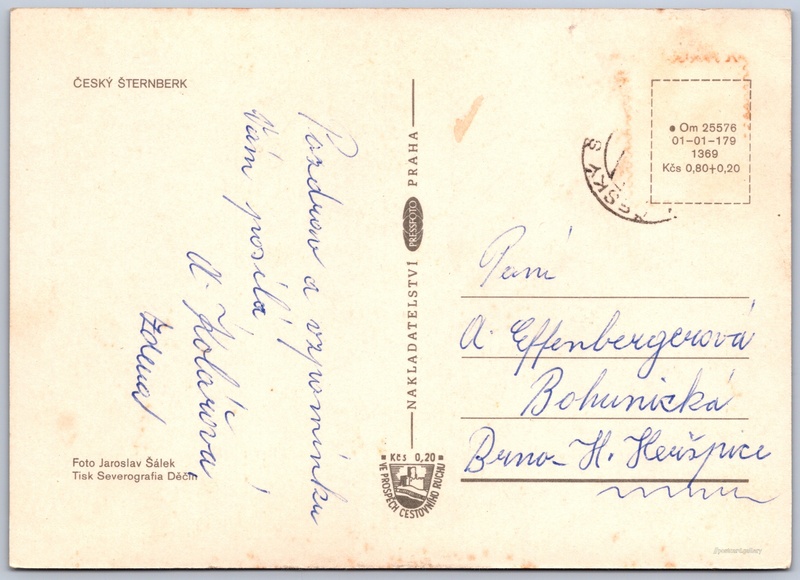 ČESKÝ ŠTERNBERK
Pozdrav a vzpomínku
Vám posílá
A. Kolářová
Zdena
Foto Jaroslav Šálek
Tisk Severografia Děčín
NAKLADATELSTVÍ PRESSFOTO PRAHA
Kčs 0,20
VE PROSPĚCH CESTOVNÍHO RUCHU
Om 25576
01-01-179
1369
Kčs 0,80+0,20
Paní
A. Effenbergerová
Bohunická
Brno-H. Heršpice